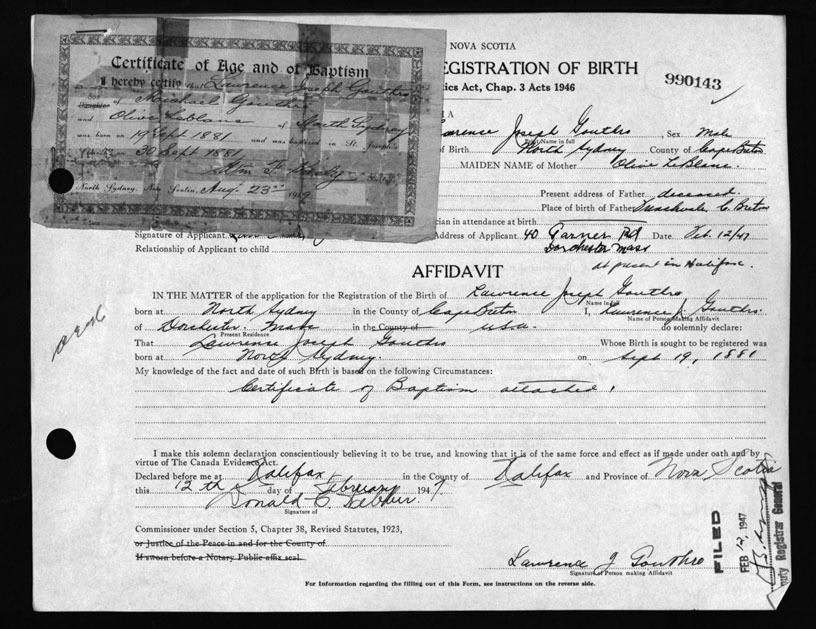 Certificate of Age and of Baptism
I hereby certify that Lawrence Joseph Gouthro
Son
Daughter of Michael Gouthro
and Olive Leblanc of North Sydney
was born on 19 Sept 1881 and was baptized in St. Joseph's
on 30 Sept 1881
North Sydney, Nova Scotia, Aug. 23rd 19
NOVA SCOTIA
EGISTRATION OF BIRTH
990143
tics Act, Chap. 3 Acts 1946
arence Joseph Gouthro, Sex Male
Name in full
of Birth North Sydney County of Cape Breton
MAIDEN NAME of Mother Olive LeBlanc.
Present address of Father deceased
Place of birth of Father C. Breton
cian in attendance at birth
Signature of Applicant Address of Applicant 40 Garner Rd Date Feb. 12/47
Relationship of Applicant to child Dorchester Mass
at present in Halifax.
AFFIDAVIT
IN THE MATTER of the application for the Registration of the Birth of Lawrence Joseph Gouthro
Name in full
born at North Sydney in the County of Cape Breton I, Lawrence J. Gouthro.
Name of Person Making Affidavit
of Dorchester. Mass in the County of U.S.A. do solemnly declare:
Present Residence
That Lawrence Joseph Gouthro Whose Birth is sought to be registered was
born at North Sydney. on Sept 19, 1881
My knowledge of the fact and date of such Birth is based on the following Circumstances:
Certificate of Baptism attached.
I make this solemn declaration conscientiously believing it to be true, and knowing that it is of the same force and effect as if made under oath and by
virtue of The Canada Evidence Act.
Declared before me at Halifax in the County of Halifax and Province of Nova Scotia
this 12th day of February 1947.
Donald C.
Signature of
Commissioner under Section 5, Chapter 38, Revised Statutes, 1923,
or Justice of the Peace in and for the County of
If sworn before a Notary Public affix seal.
Lawrence J Gouthro
Signature of Person making Affidavit
For Information regarding the filling out of this Form, see instructions on the reverse side.
FILED
FEB 1947
uty Registrar General